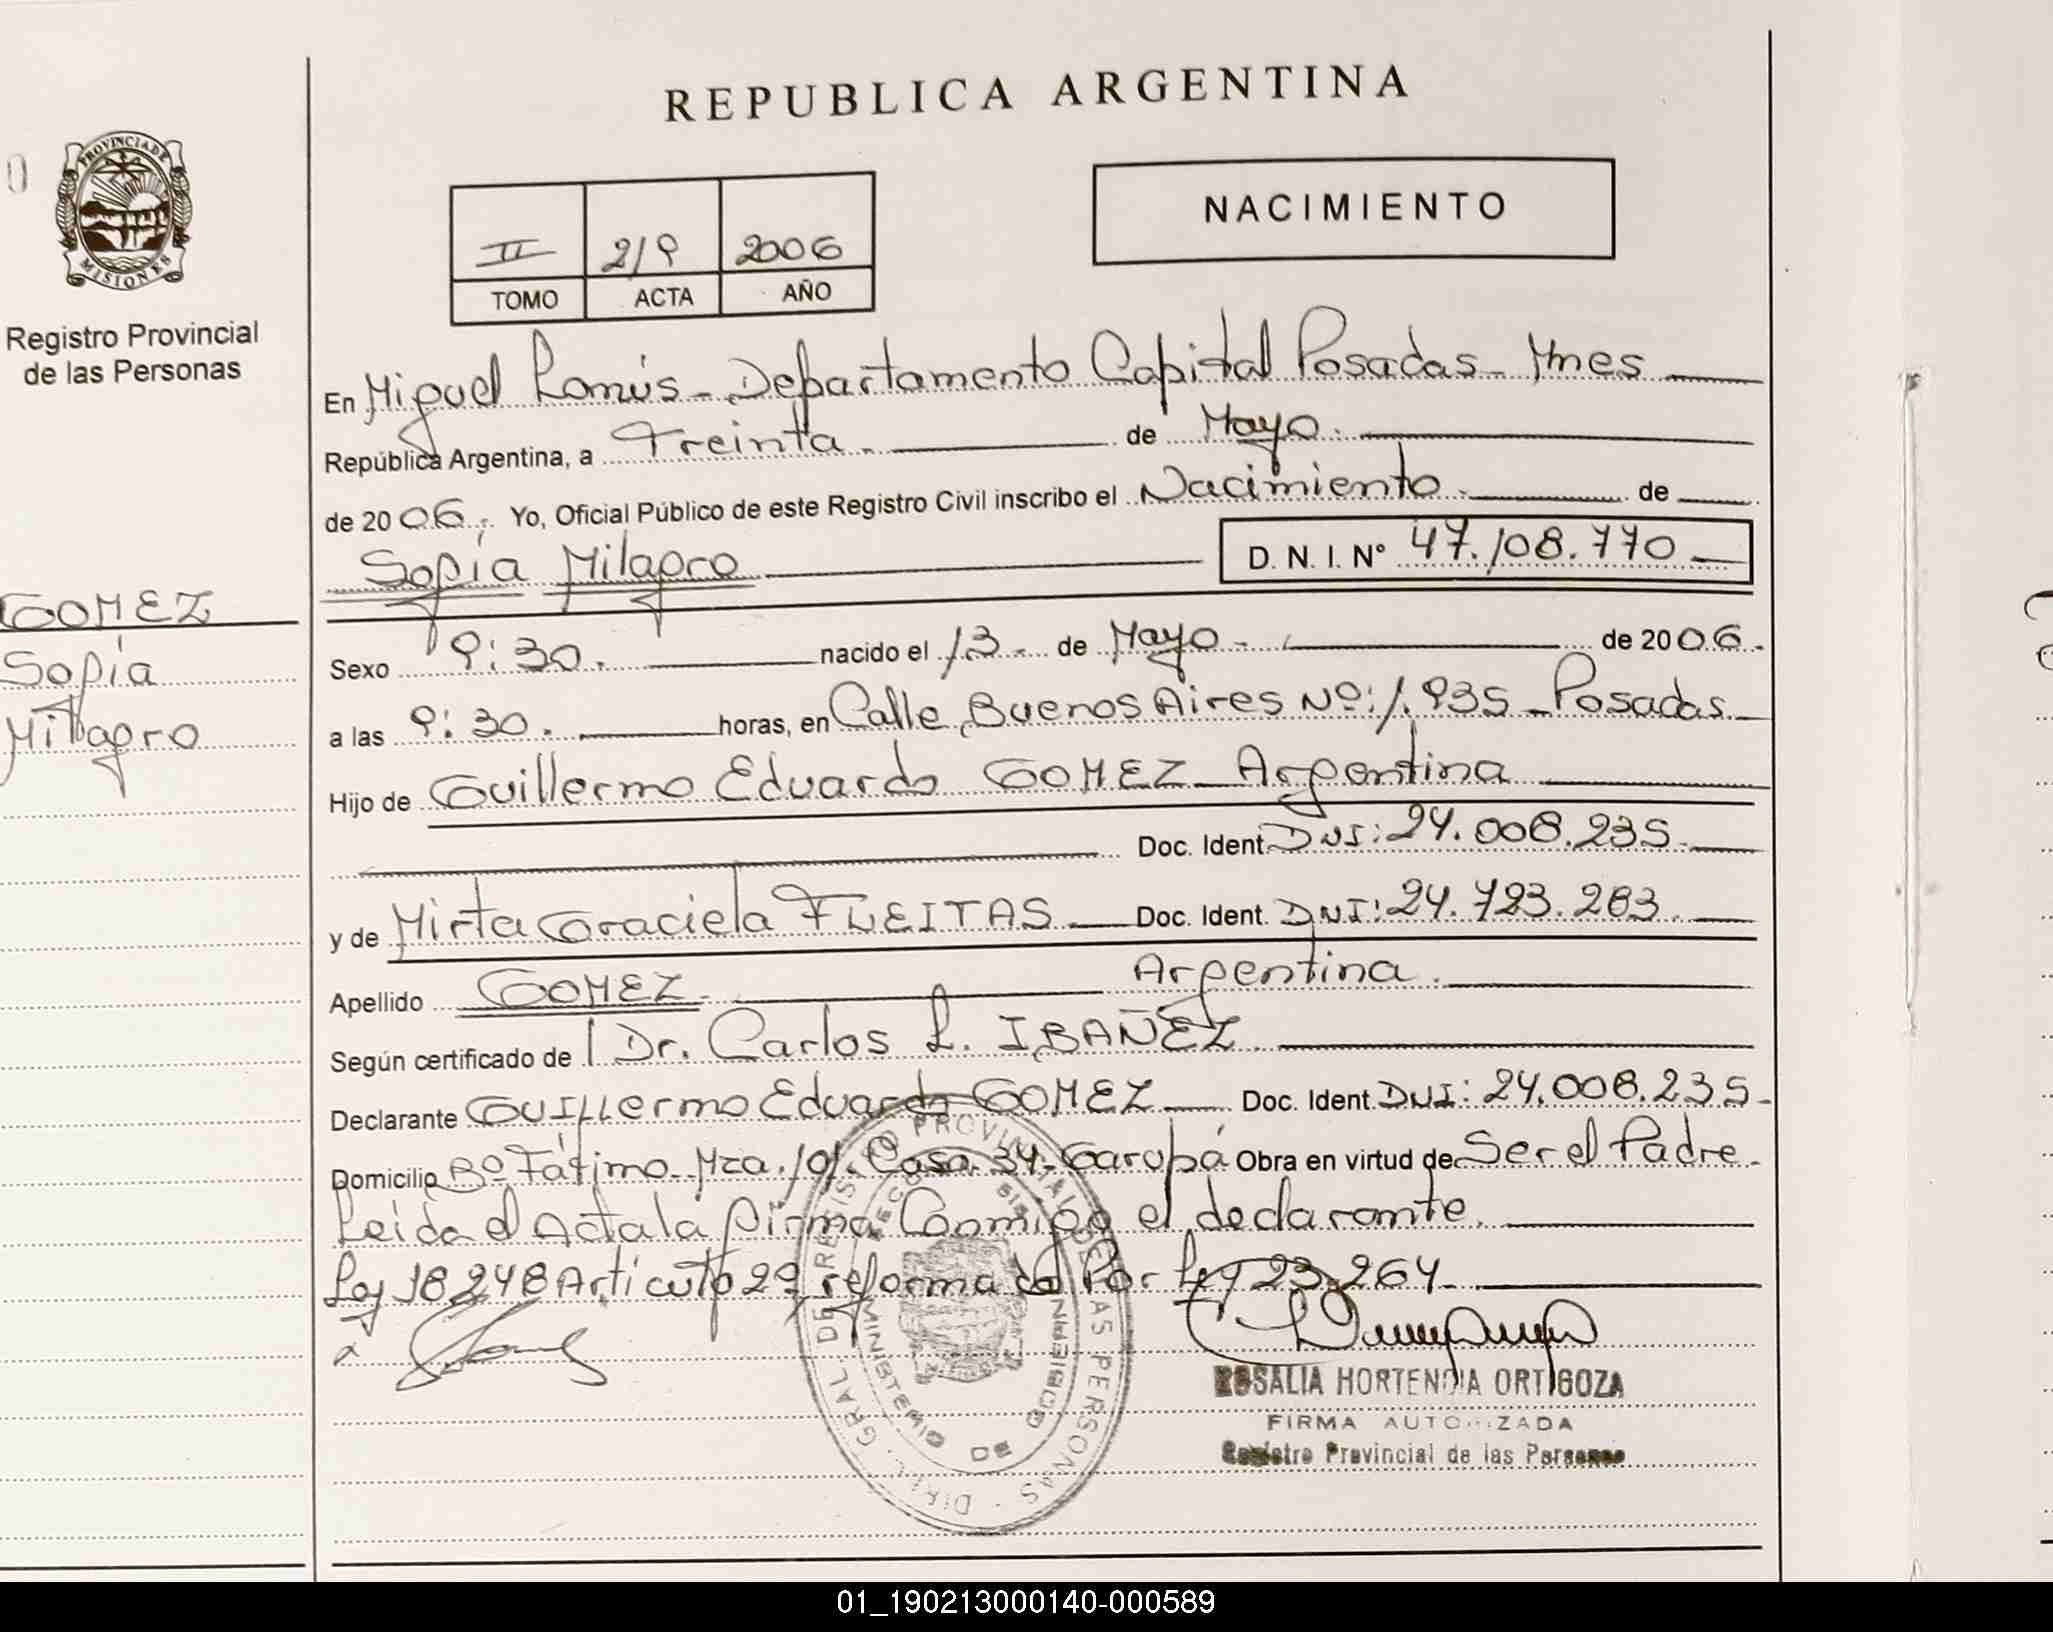 REPUBLICA ARGENTINA
PROVINCIA DE
MISIONES
Registro Provincial
de las Personas
II 219 2006
TOMO ACTA AÑO
NACIMIENTO
En Miguel Lanús - Departamento Capital Posadas - Mnes
República Argentina, a Treinta. de Mayo.
de 2006. Yo, Oficial Público de este Registro Civil inscribo el Nacimiento. de
Sofía Milagro
D. N. I. N° 47.108.770
GOMEZ
Sofía
Milagro
Sexo 9:30. nacido el 13. de Mayo - de 2006.
a las 9:30. horas, en Calle Buenos Aires Nº: 1.935 - Posadas
Hijo de Guillermo Eduardo GOMEZ - Argentina
Doc. Ident. DNI: 24.008.235.
y de Mirta Graciela FLEITAS Doc. Ident. DNI: 24.723.283.
Apellido GOMEZ. Argentina.
Según certificado de Dr. Carlos L. IBAÑEZ
Declarante Guillermo Eduardo GOMEZ Doc. Ident. DNI: 24.008.235.
Domicilio Bº Fátima Mza. 101. Casa 34 - Garupá Obra en virtud de Ser el Padre.
Leida el Acta la firma Conmigo el declarante.
Ley 18248 Articulo 2º reformada Por Ley 23.264.
ROSALIA HORTENCIA ORTIGOZA
FIRMA AUTORIZADA
Registro Provincial de las Personas
DIR. GRAL. DE REGISTRO PROVINCIAL DE LAS PERSONAS
MINISTERIO DE GOBIERNO
01_190213000140-000589